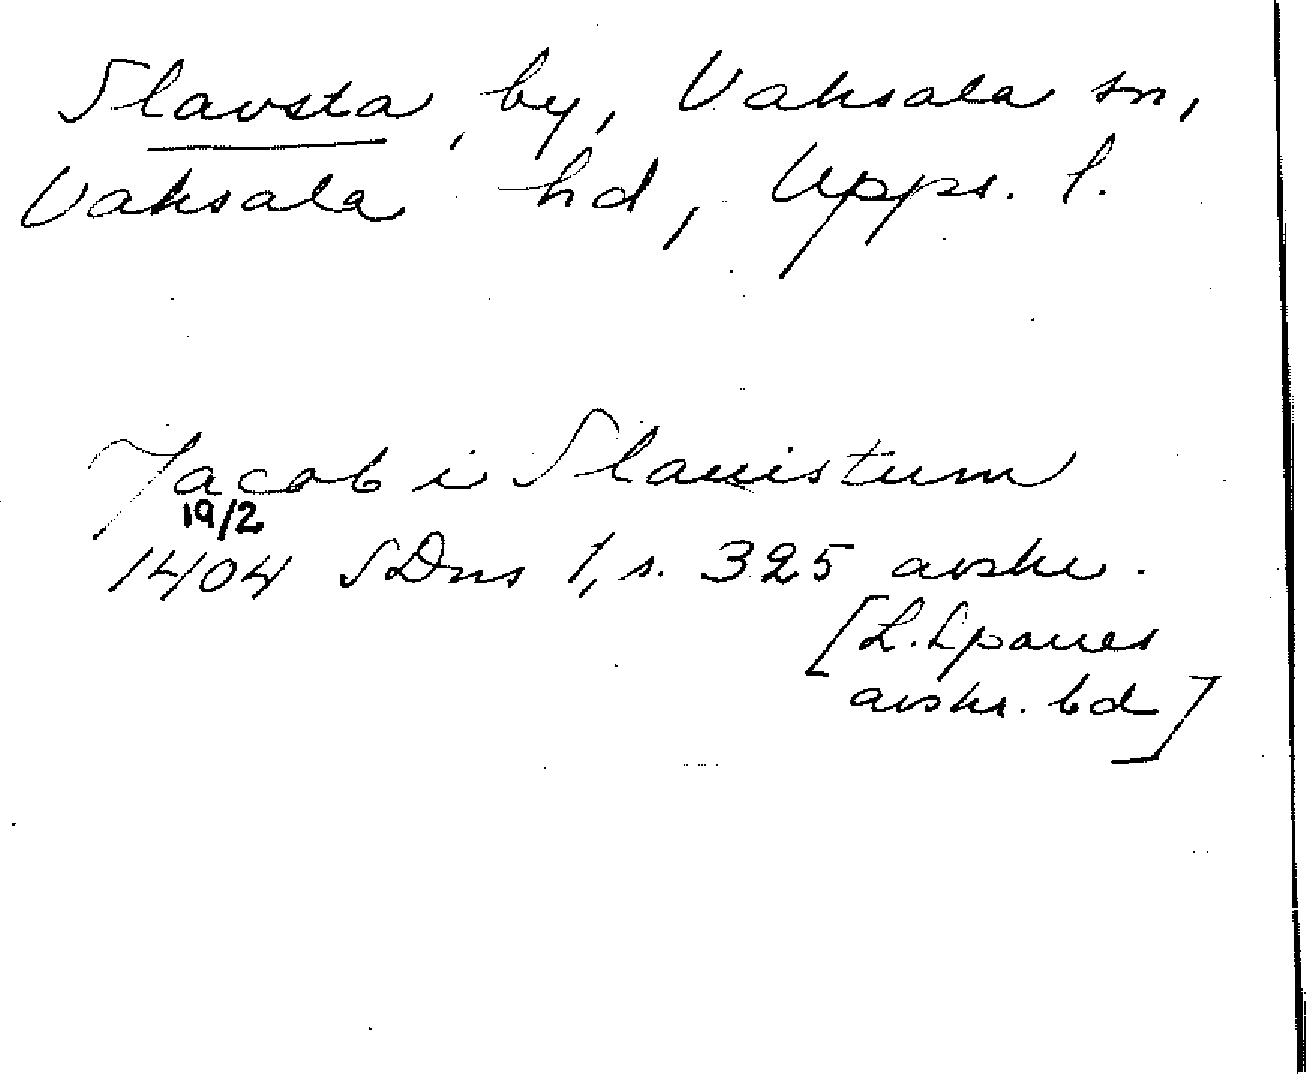 Slavsta, by, Vaksala sn,
Vaksala hd, Upps. l.
Jacob i Slauistum
19/2
1404 SDns 1, s. 325 avskr.
[L. Spanes
avskr. bd]